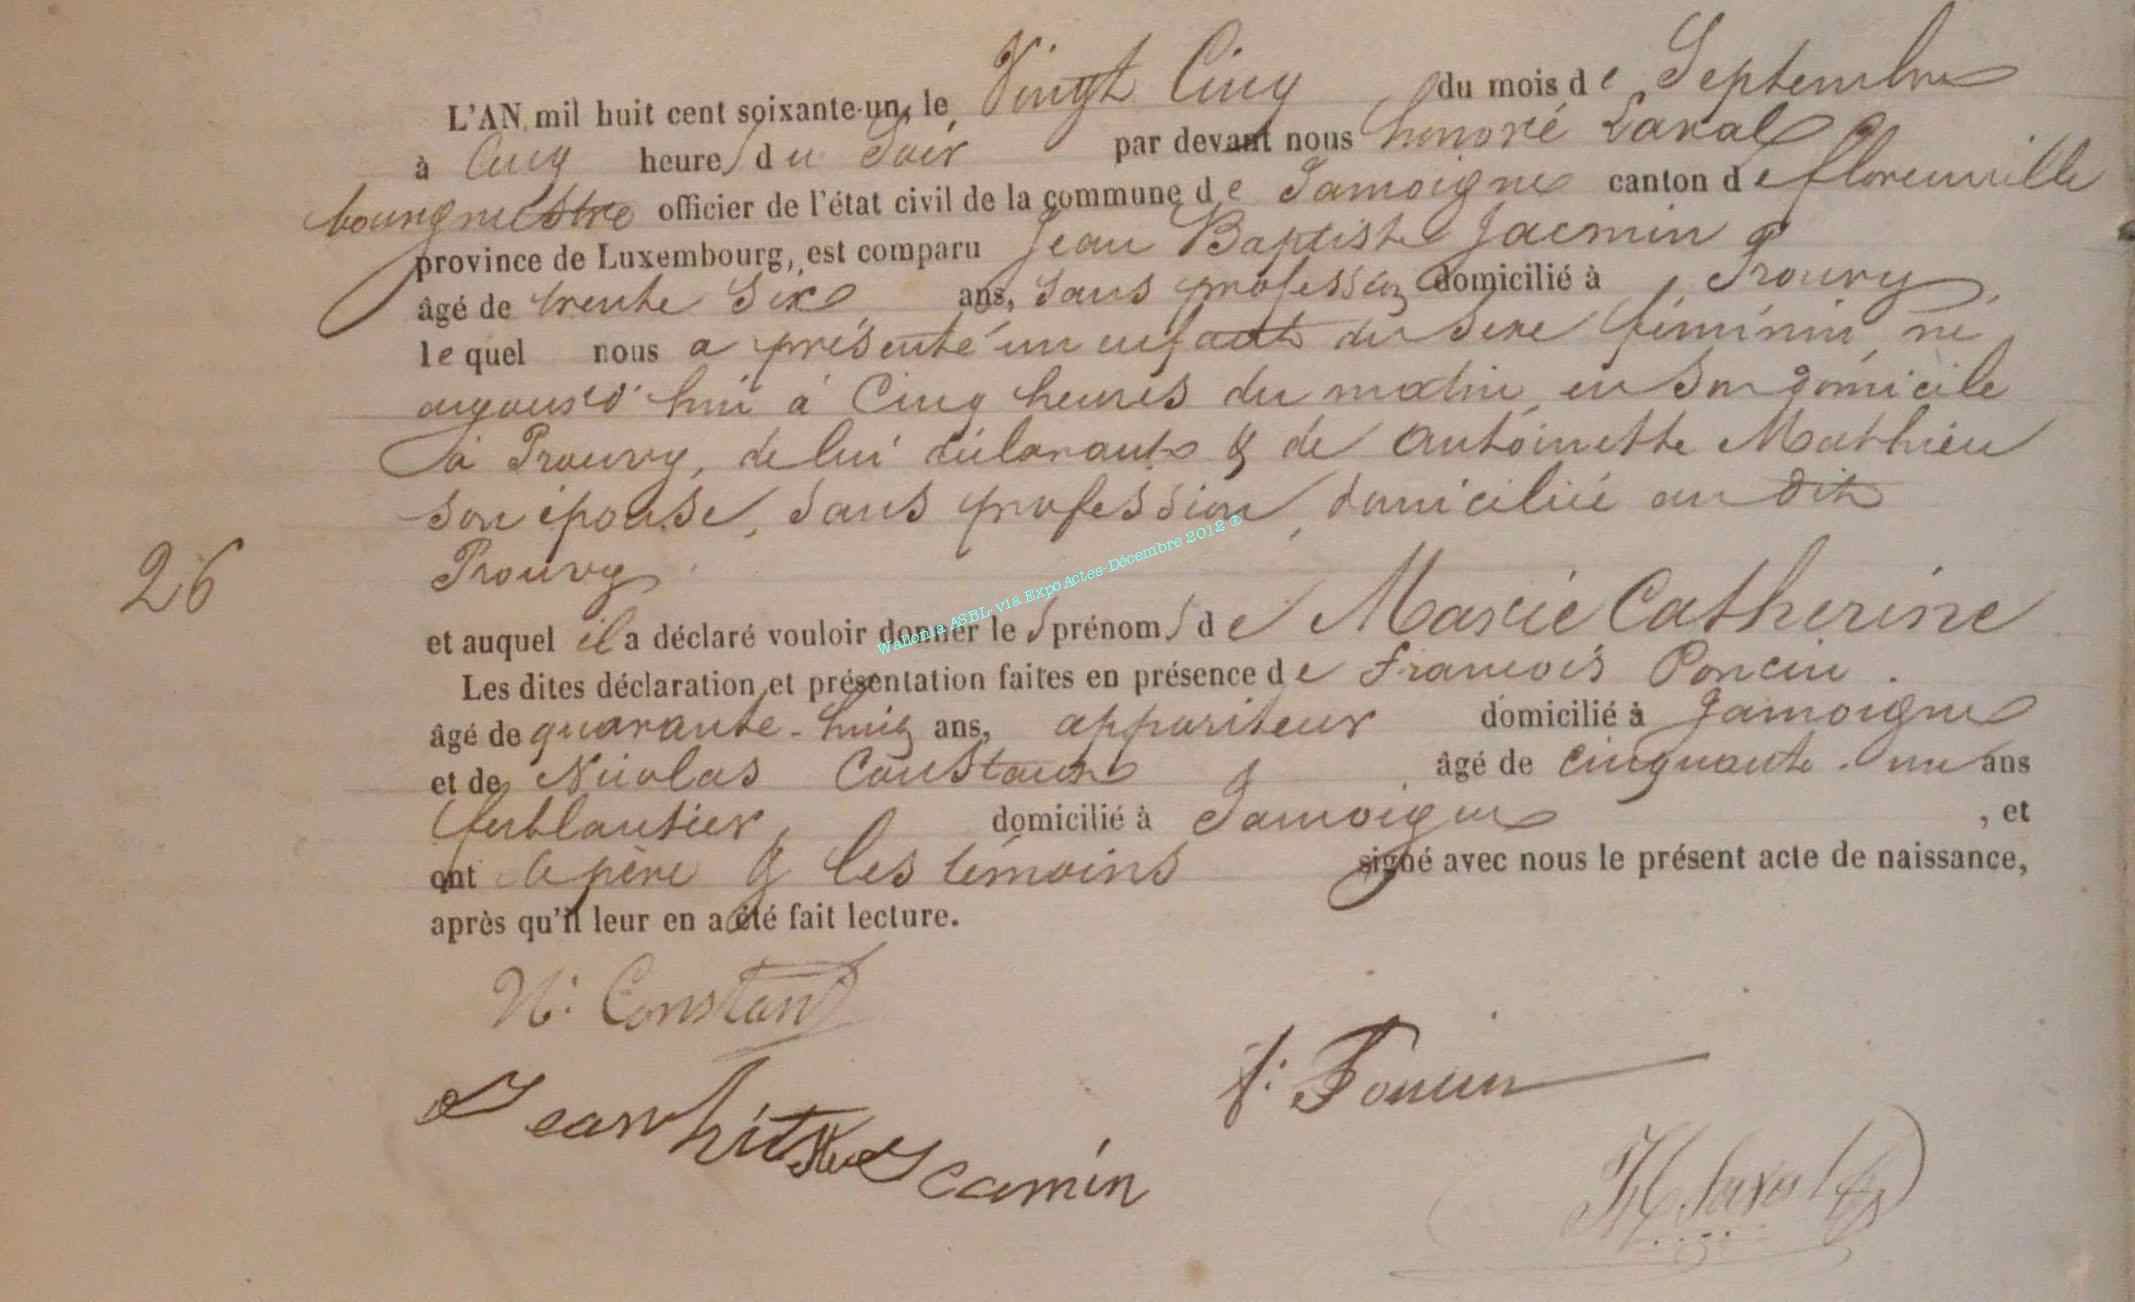 L'AN mil huit cent soixante-un, le Vingt Cinq du mois de Septembre
à Cinq heures du Soir par devant nous honoré Laval
bourgmestre officier de l'état civil de la commune de Jamoigne canton de florenville
province de Luxembourg, est comparu Jean Baptiste Jacmin
âgé de trente Six ans, Sans profession domicilié à Prouvy,
lequel nous a présenté un enfant du Sexe féminin, né
aujourd'hui à Cinq heures du matin, en Son domicile
à Prouvy, de lui déclarant & de Antoinette Mathieu
Son épouse, Sans profession, domiciliée au dit
26
Prouvy
et auquel il a déclaré vouloir donner les prénoms de Marie Catherine
Les dites déclaration et présentation faites en présence de francois Poncin
âgé de quarante-huit ans, appariteur domicilié à Jamoigne
et de Nicolas Constant âgé de Cinquante-un ans
ferblantier, domicilié à Jamoigne, et
ont le père & les témoins signé avec nous le présent acte de naissance,
après qu'il leur en a été fait lecture.
N: Constant
f: Poncin
Jean Jacmin
H Laval
Wallonia ASBL via Expo Actes-Décembre 2012 ©